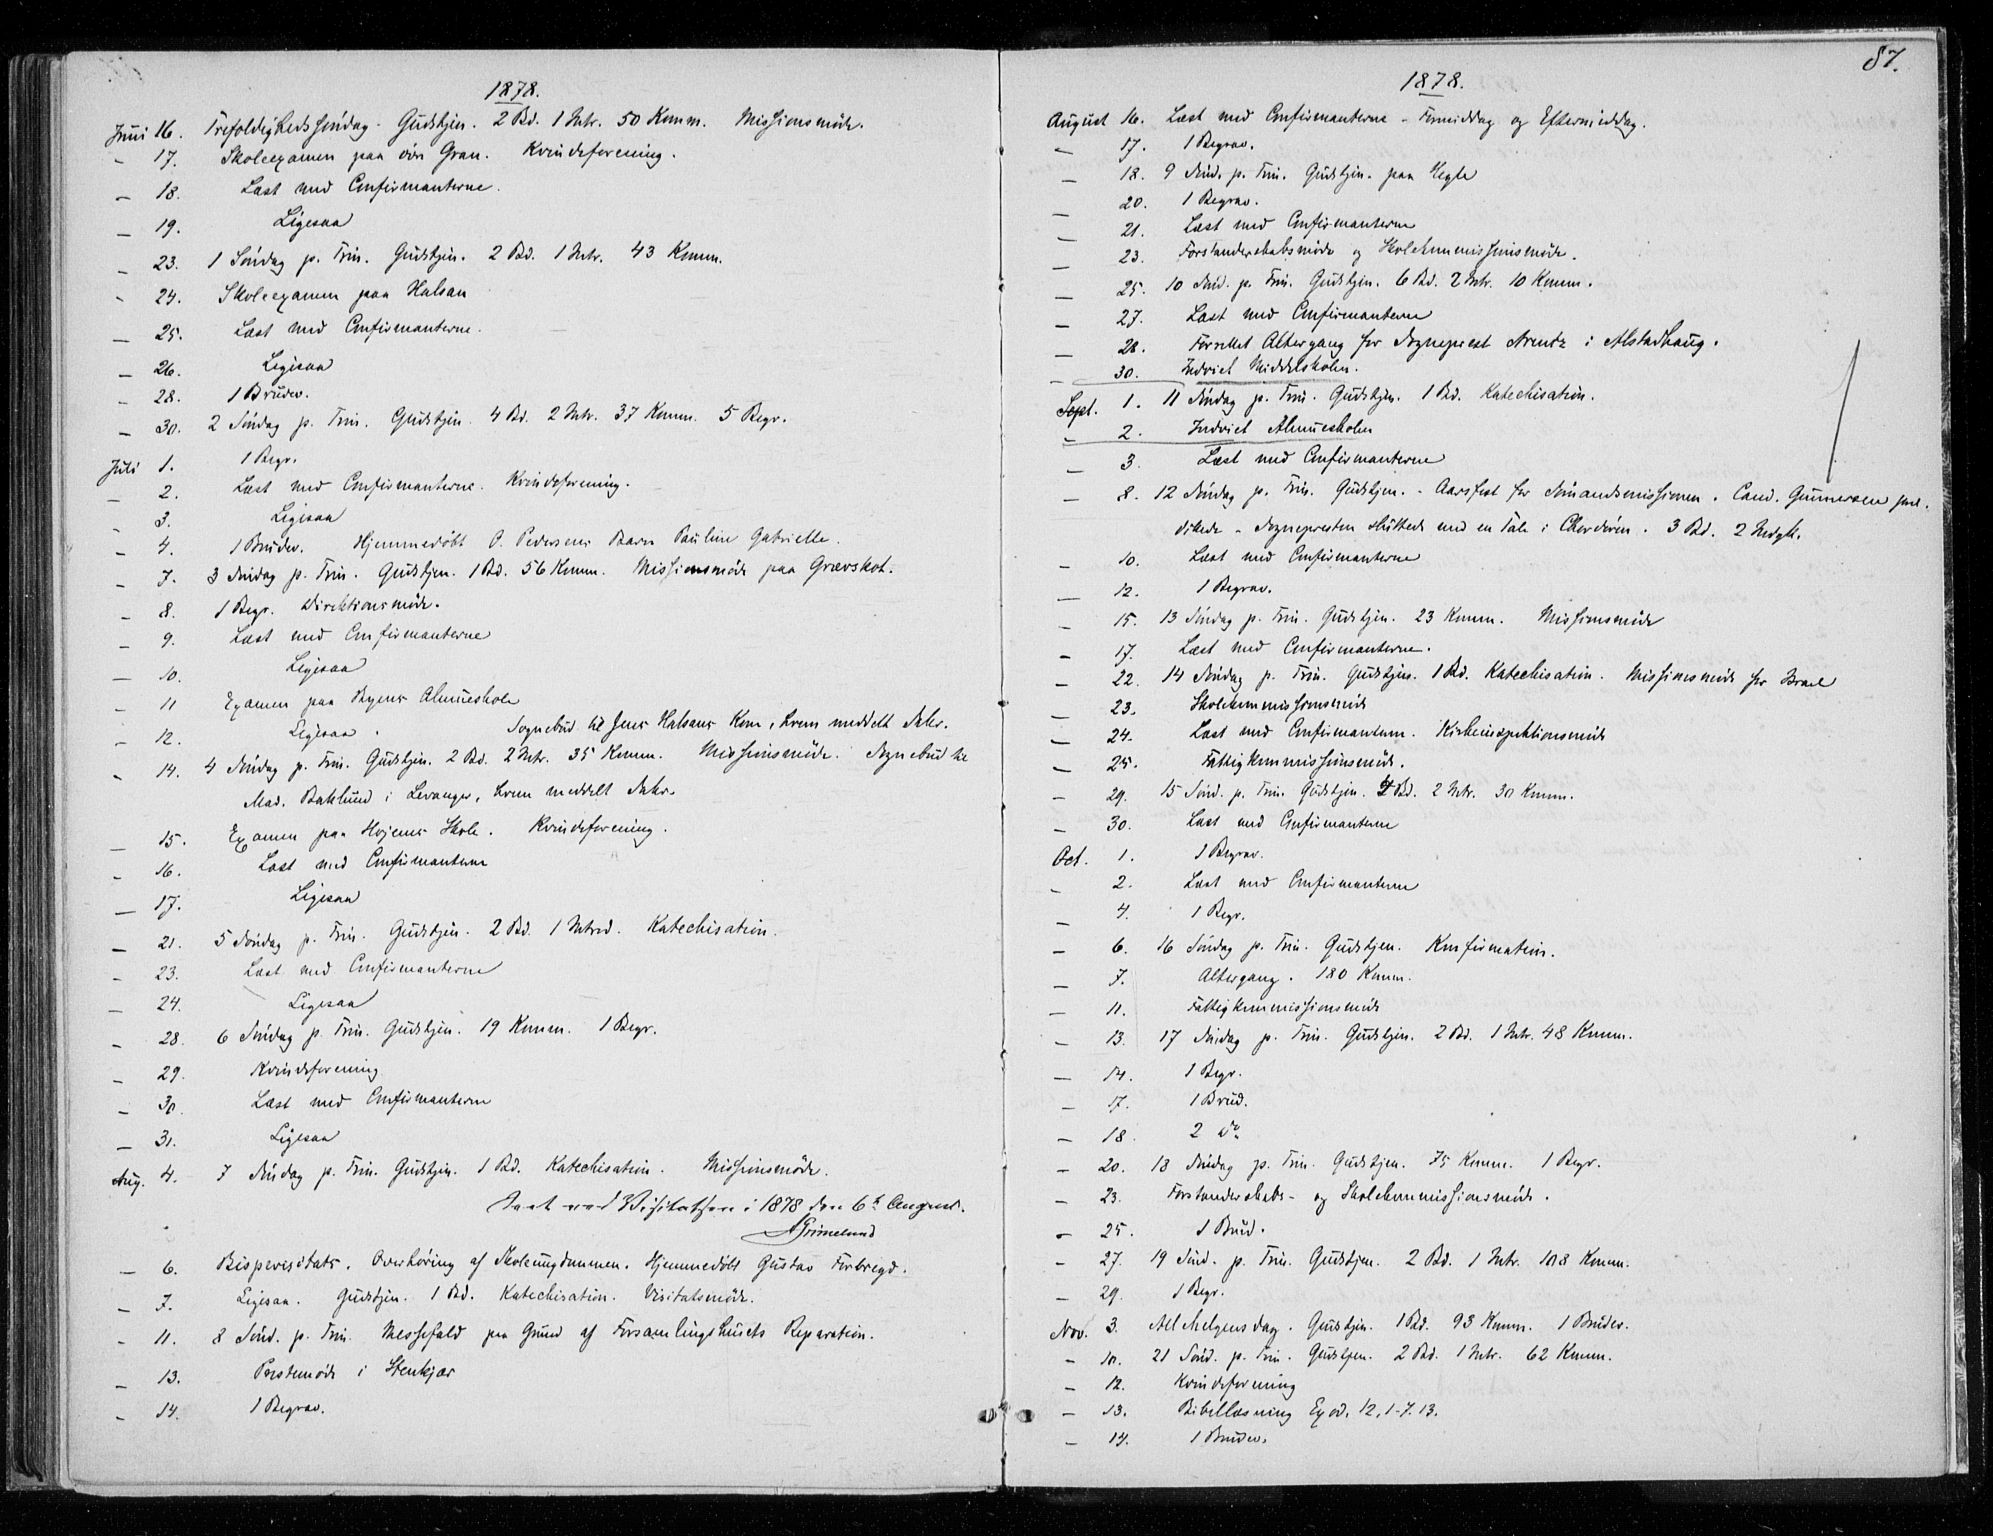 1878.
Juni 16. Trefoldighedssöndag. Gudstjen. 2 Bd. 1 Intr. 50 Komm. Missionsmöde.
– 17. Skoleexamen paa övre Gran. Kvindeforening.
– 18. Læst med Confirmanterne.
– 19. Ligesaa
– 23. 1 Söndag p. Trin. Gudstjen. 2 Bd. 1 Intr. 43 Komm.
– 24. Skoleexamen paa Halsan
– 25. Læst med Confirmanterne.
– 26. Ligesaa
– 28. 1 Brudev.
– 30. 2 Söndag p. Trin. Gudstjen. 4 Bd. 2 Intr. 37 Komm. 5 Begr.
Juli 1. 1 Begr.
– 2. Læst med Confirmanterne. Kvindeforening.
– 3. Ligesaa
– 4. 1 Brudev. Hjemmedöbt P. Pedersens Barn Pauline Gabrielle.
– 7. 3 Söndag p. Trin. Gudstjen. 1 Bd. 56 Komm. Missionsmöde paa Grevskot.
– 8. 1 Begr. Direktionsmöde.
– 9. Læst med Confirmanterne
– 10. Ligesaa
– 11 Examen paa Byens Almueskole
– 12. Ligesaa. Sognebud til Jens Halsans Kone, hvem meddelt Sakr.
– 14. 4 Söndag p. Trin. Gudstjen. 2 Bd. 2 Intr. 35 Komm. Missionsmöde. Sognebud til
Mad. Baklund i Levanger, hvem meddelt Sakr.
– 15. Examen paa Hojems Skole. Kvindeforening.
– 16. Læst med Confirmanterne
– 17. Ligesaa
– 21. 5 Söndag p. Trin. Gudstjen. 2 Bd. 1 Introd. Katechisation.
– 23. Læst med Confirmanterne
– 24. Ligesaa
– 28. 6 Söndag p. Trin. Gudstjen. 19 Komm. 1 Begr.
– 29. Kvindeforening
– 30. Læst med Confirmanterne
– 31. Ligesaa
Aug. 4. 7 Söndag p. Trin. Gudstjen. 1 Bd. Katechisation. Missionsmöde.
Seet ved Visitatsen i 1878 den 6te August.
AGrimelund
– 6. Bispevisitats. Overhöring af Skoleungdommen. Hjemmedöbt Gustav Forbregd.
– 7. Ligesaa. Gudstjen. 1 Bd. Katechisation. Visitatsmöde.
– 11. 8 Sönd. p. Trin. Messefald paa Grund af Forsamlingshusets Reparation.
– 13. Prestemöde i Stenkjær
– 14. 1 Begrav.
87.
1878.
August 16. Læst med Confirmanterne – Formiddag og Eftermiddag.
– 17. 1 Begrav.
– 18. 9 Sönd. p. Trin. Gudstjen. paa Hegle
– 20. 1 Begrav.
– 21. Læst med Confirmanterne
– 23. Forstanderskabsmöde og Skolekommissionsmöde.
– 25. 10 Sönd. p. Trin. Gudstjen. 6 Bd. 2 Intr. 10 Komm.
– 27. Læst med Confirmanterne
– 28. Forrettet Altergang for Sogneprest Arentz i Alstadhaug.
– 30. Indviet Middelskolen.
Sept. 1. 11 Söndag p. Trin. Gudstjen. 1 Bd. Katechisation.
– 2. Indviet Almueskolen
– 3. Læst med Confirmanterne
– 8. 12 Söndag p. Trin. Gudstjen. – Aarsfest for Sömandsmissionen. Cand. Gunnersen præ-
dikede – Sognepresten sluttede med en Tale i Chordören. 3 Bd. 2 Indgk.
– 10. Læst med Confirmanterne
– 12. 1 Begrav.
– 15. 13 Söndag p. Trin. Gudstjen. 23 Komm. Missionsmöde
– 17. Læst med Confirmanterne.
– 22. 14 Söndag p. Trin. Gudstjen. 1 Bd. Katechisation. Missionsmöde for Israel
– 23. Skolekommissionsmöde
– 24. Læst med Confirmanterne. Kirkeinspektionsmöde
– 25. Fattigkommissionsmöde.
– 29. 15 Sönd. p. Trin. Gudstjen. Bd. 2 Intr. 30 Komm.
– 30. Læst med Confirmanterne
Oct. 1. 1 Begrav.
– 2. Læst med Confirmanterne
– 4. 1 Begr.
– 6. 16 Söndag p. Trin. Gudstjen. Konfirmation.
– 7. Altergang. 180 Komm.
– 11. Fattigkommissionsmöde
– 13. 17 Söndag p. Trin. Gudstjen. 2 Bd. 1 Intr. 48 Komm.
– 14. 1 Begr.
– 17. 1 Brud.
– 18. 2 do
– 20. 18 Söndag p. Trin. Gudstjen. 75 Komm. 1 Begr.
– 23. Forstanderskabs- og Skolekommissionsmöde.
– 25. 1 Brud.
– 27. 19 Sönd. p. Trin. Gudstjen. 2 Bd. 1 Intr. 108 Komm.
– 29. 1 Begr.
Nov. 3. Allehelgensdag. Gudstjen. 1 Bd. 93 Komm. 1 Brudev.
– 10. 21 Sönd. p. Trin. Gudstjen. 2 Bd. 1 Intr. 62 Komm.
– 12. Kvindeforening
– 13. Bibellæsning Exod. 12, 1-7. 13.
– 14. 1 Brudev.